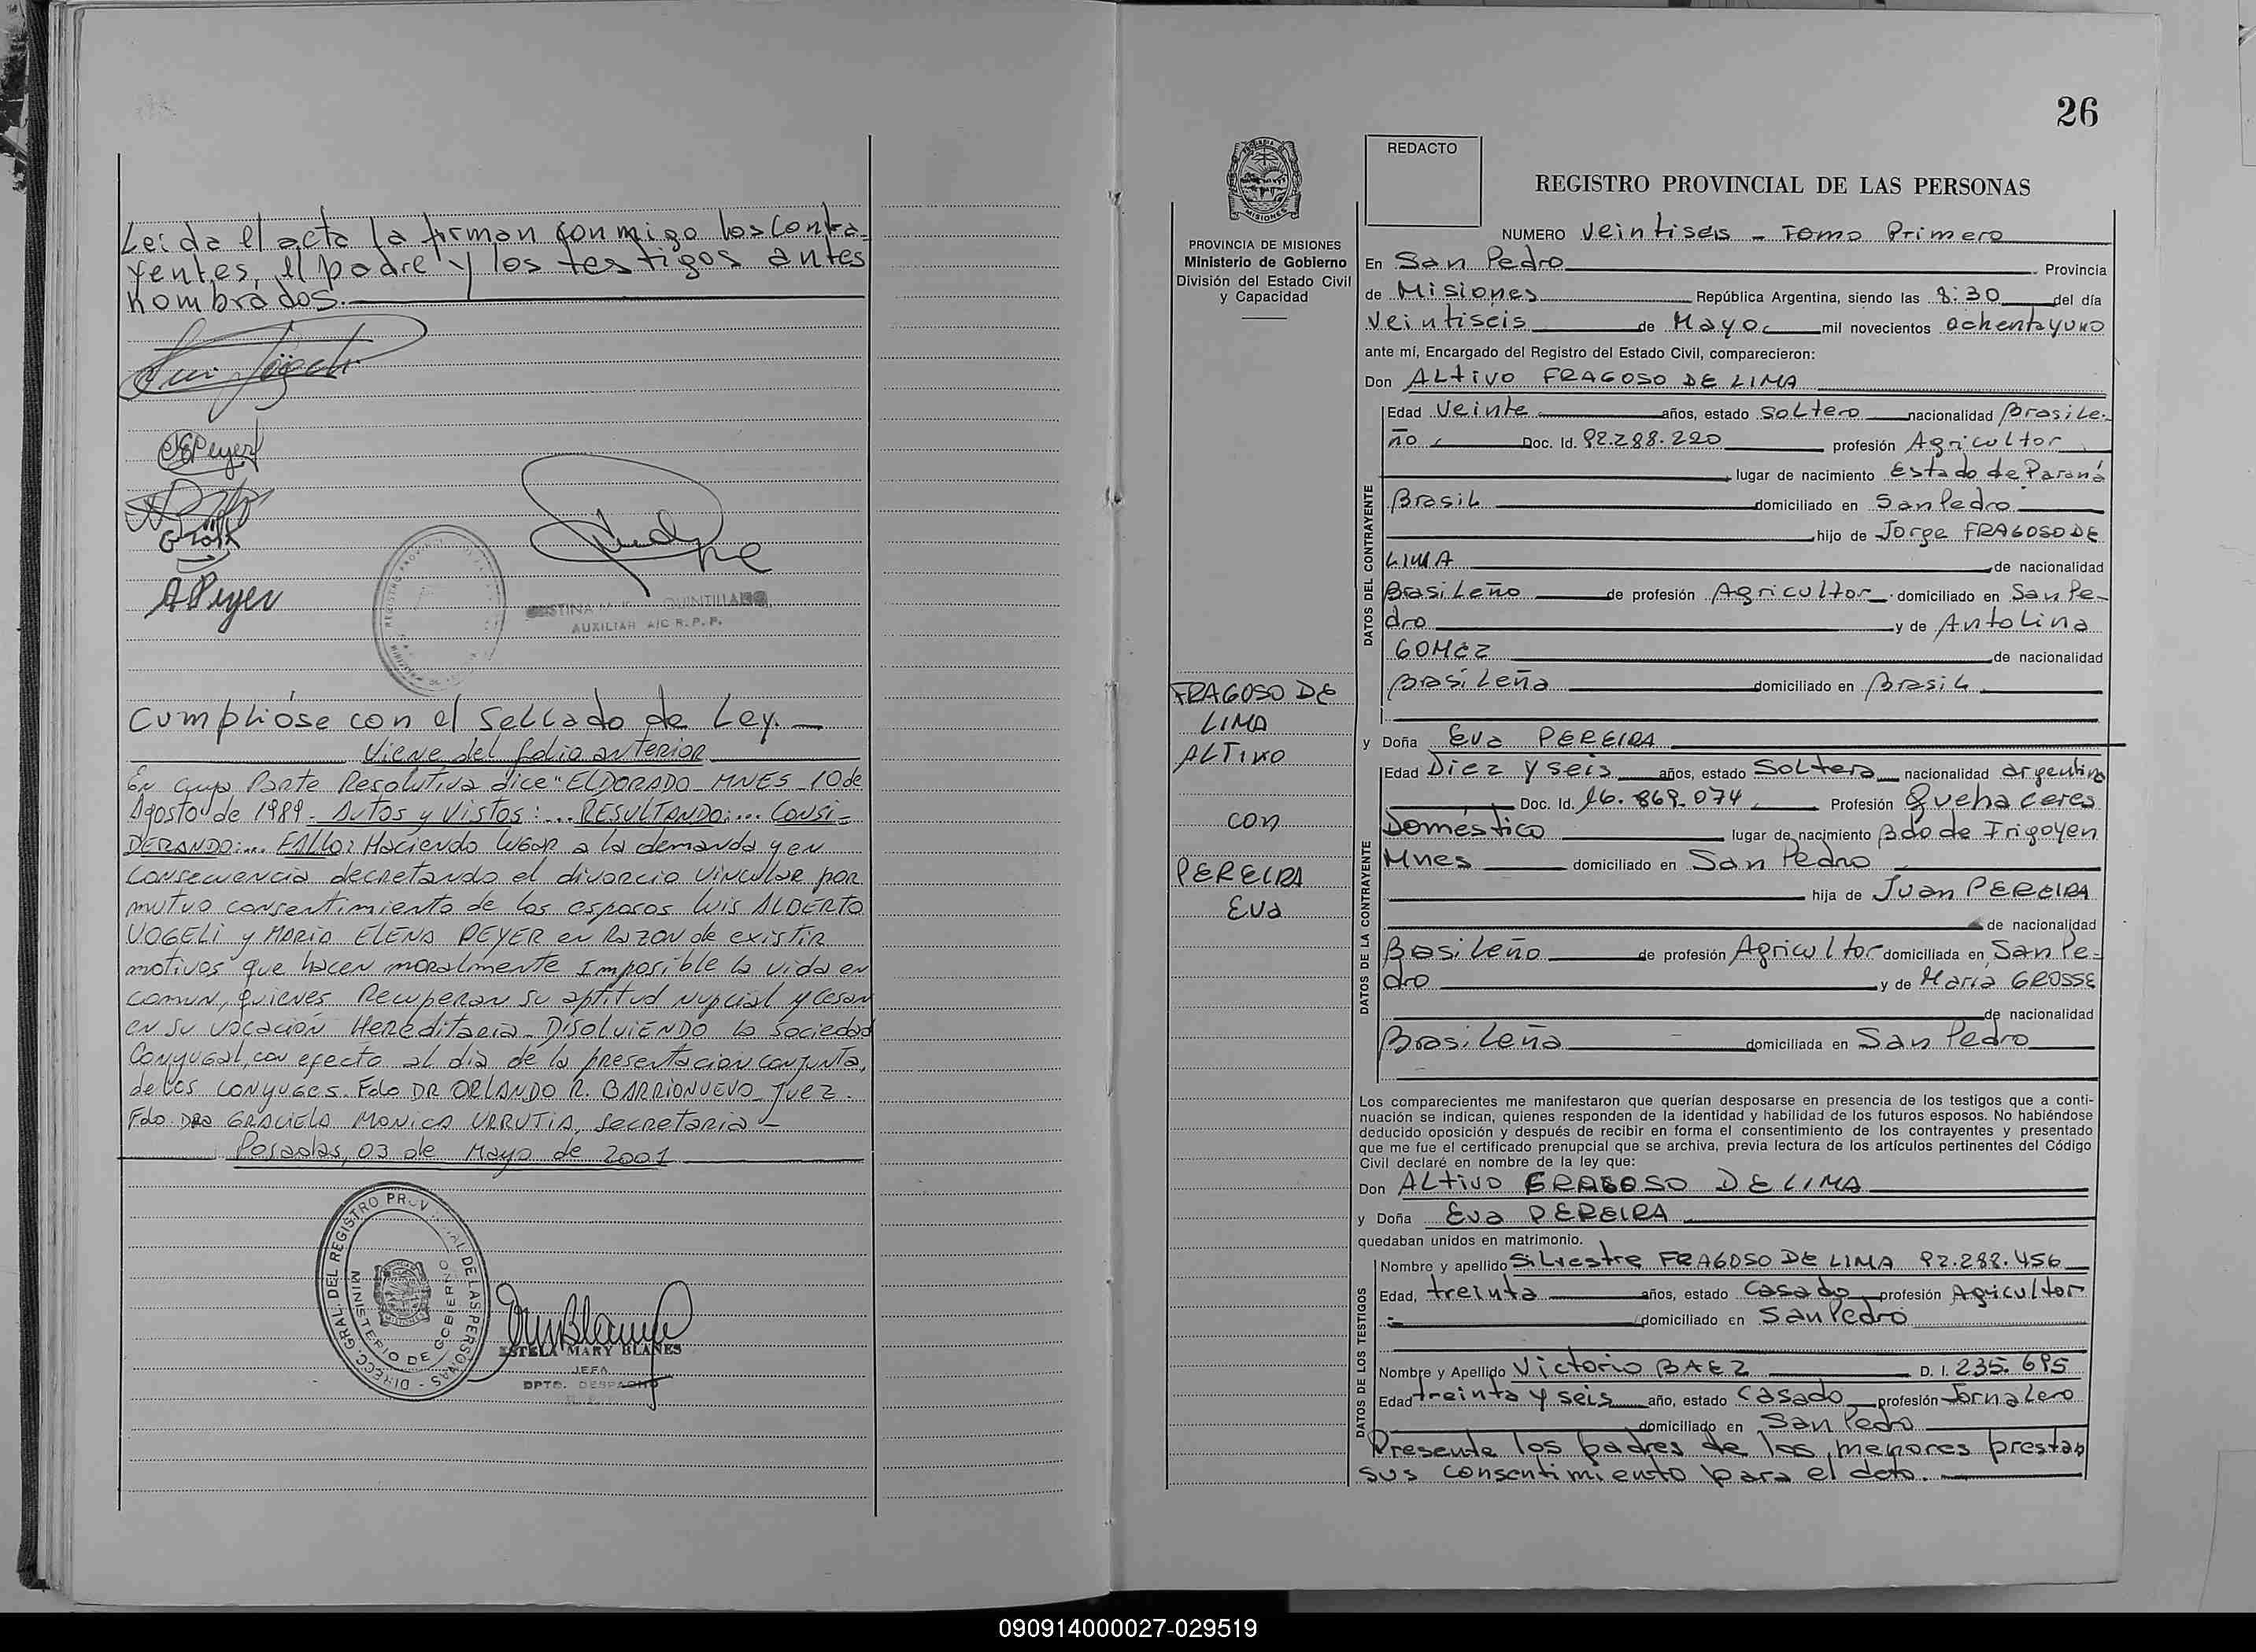 Leida el acta la firman conmigo los contra-
yentes, el padre y los testigos antes
nombrados.
EPeyer
APeyer
QUINTILLANO
AUXILIAR A/C R.P.P.
Cumplióse con el sellado de Ley. —
Viene del folio anterior
En cuya Parte Resolutiva dice "ELDORADO-MNES-10 de
Agosto de 1989 - Autos y Vistos:... RESULTANDO:... CONSI-
DERANDO:... FALLO: Haciendo lugar a la demanda y en
consecuencia decretando el divorcio vincular por
mutuo consentimiento de los esposos Luis ALBERTO
VOGELI y MARIA ELENA PEYER en Razon de existir
motivos que hacen moralmente Imposible la vida en
comun, quienes Recuperan su aptitud nupcial y cesan
en su vocación Hereditaria - DISOLVIENDO la sociedad
Conyugal, con efecto al dia de la presentación conjunta,
de los conyuges. Fdo DR ORLANDO R. BARRIONUEVO - Juez.
Fdo. DRA GRACIELA MONICA URRUTIA, Secretaria -
Posadas, 03 de Mayo de 2001
DIRECC. GRAL. DEL REGISTRO PROVINCIAL DE LAS PERSONAS -
MINISTERIO DE GOBIERNO
ESTELA MARY BLANES
JEFA
DPTO. DESPACHO
26
PROVINCIA DE MISIONES
Ministerio de Gobierno
División del Estado Civil
y Capacidad
FRAGOSO DE
LIMA
ALTIVO
con
PEREIRA
Eva
REDACTO
REGISTRO PROVINCIAL DE LAS PERSONAS
NUMERO Veintiseis - Tomo Primero
En San Pedro Provincia
de Misiones República Argentina, siendo las 8:30 del día
Veintiseis de Mayo mil novecientos ochentayuno
ante mí, Encargado del Registro del Estado Civil, comparecieron:
Don ALtivo FRAGOSO DE LIMA
DATOS DEL CONTRAYENTE
Edad Veinte años, estado Soltero nacionalidad Brasile-
ño Doc. Id. 92.288.220 profesión Agricultor
lugar de nacimiento Estado de Paraná
Brasil domiciliado en San Pedro
hijo de Jorge FRAGOSO DE
LIMA de nacionalidad
Brasileño de profesión Agricultor domiciliado en San Pe-
dro y de Antolina
GOMEZ de nacionalidad
Brasileña domiciliado en Brasil
y Doña Eva PEREIRA
DATOS DE LA CONTRAYENTE
Edad Diez y seis años, estado Soltera nacionalidad argentina
Doc. Id. 16.869.074 Profesión Quehaceres
Doméstico lugar de nacimiento Bdo de Irigoyen
Mnes domiciliado en San Pedro
hija de Juan PEREIRA
de nacionalidad
Brasileño de profesión Agricultor domiciliada en San Pe-
dro y de María GROSSE
de nacionalidad
Brasileña domiciliada en San Pedro
Los comparecientes me manifestaron que querían desposarse en presencia de los testigos que a conti-
nuación se indican, quienes responden de la identidad y habilidad de los futuros esposos. No habiéndose
deducido oposición y después de recibir en forma el consentimiento de los contrayentes y presentado
que me fue el certificado prenupcial que se archiva, previa lectura de los artículos pertinentes del Código
Civil declaré en nombre de la ley que:
Don ALtivo FRAGOSO DE LIMA
y Doña Eva PEREIRA
quedaban unidos en matrimonio.
DATOS DE LOS TESTIGOS
Nombre y apellido Silvestre FRAGOSO DE LIMA 92.288.456
Edad, treinta años, estado Casado profesión Agricultor
domiciliado en San Pedro
Nombre y Apellido Victorio BAEZ D. I. 235.695
Edad treinta y seis año, estado Casado profesión Jornalero
domiciliado en San Pedro
Presente los padres de los menores prestan
sus consentimiento para el acto.
090914000027-029519